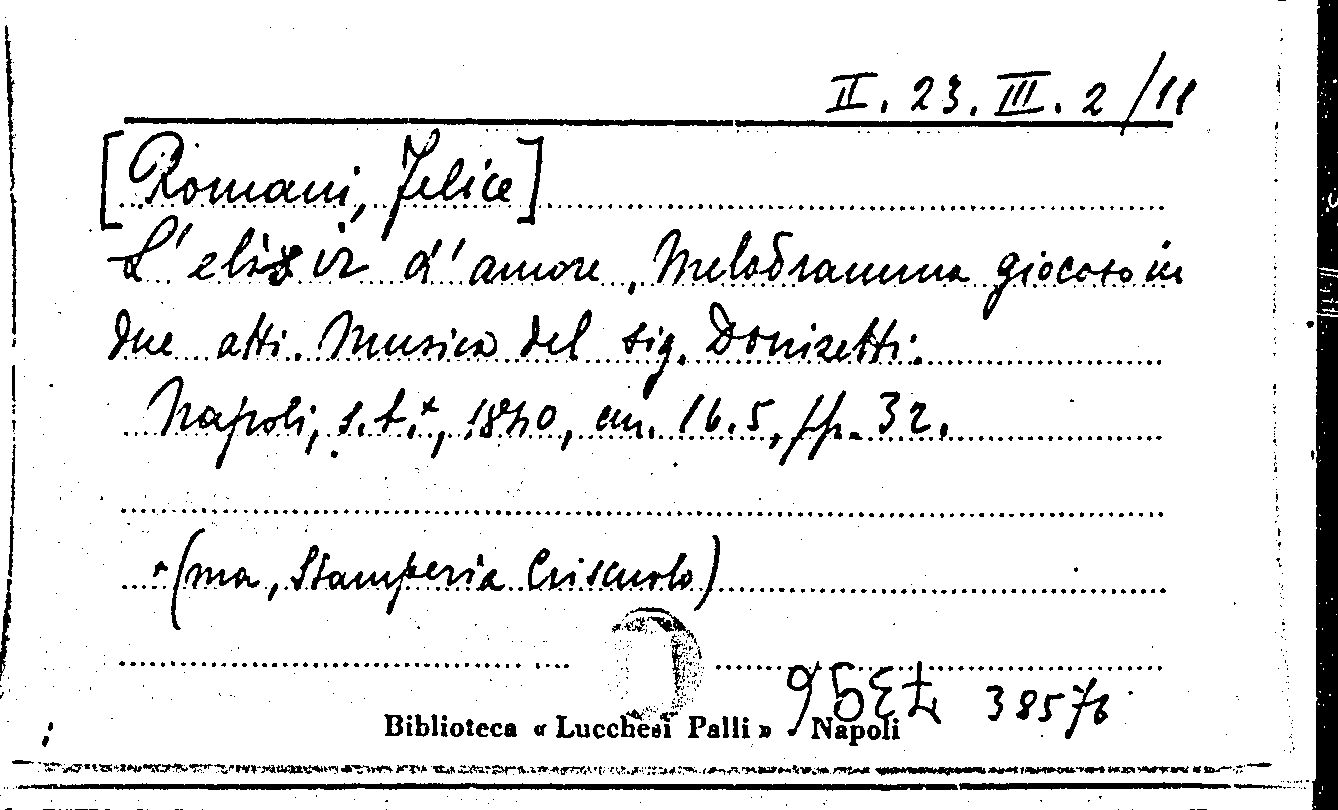 II. 23. III. 2/11
[Romani, Felice]
L'elisir d'amore, Melodramma giocoso in
due atti. Musica del sig. Donizetti.
Napoli, s.t.*, 1840, cm. 16.5, pp. 32.
*(ma, Stamperia Criscuolo)
38576
Biblioteca « Lucchesi Palli » - Napoli